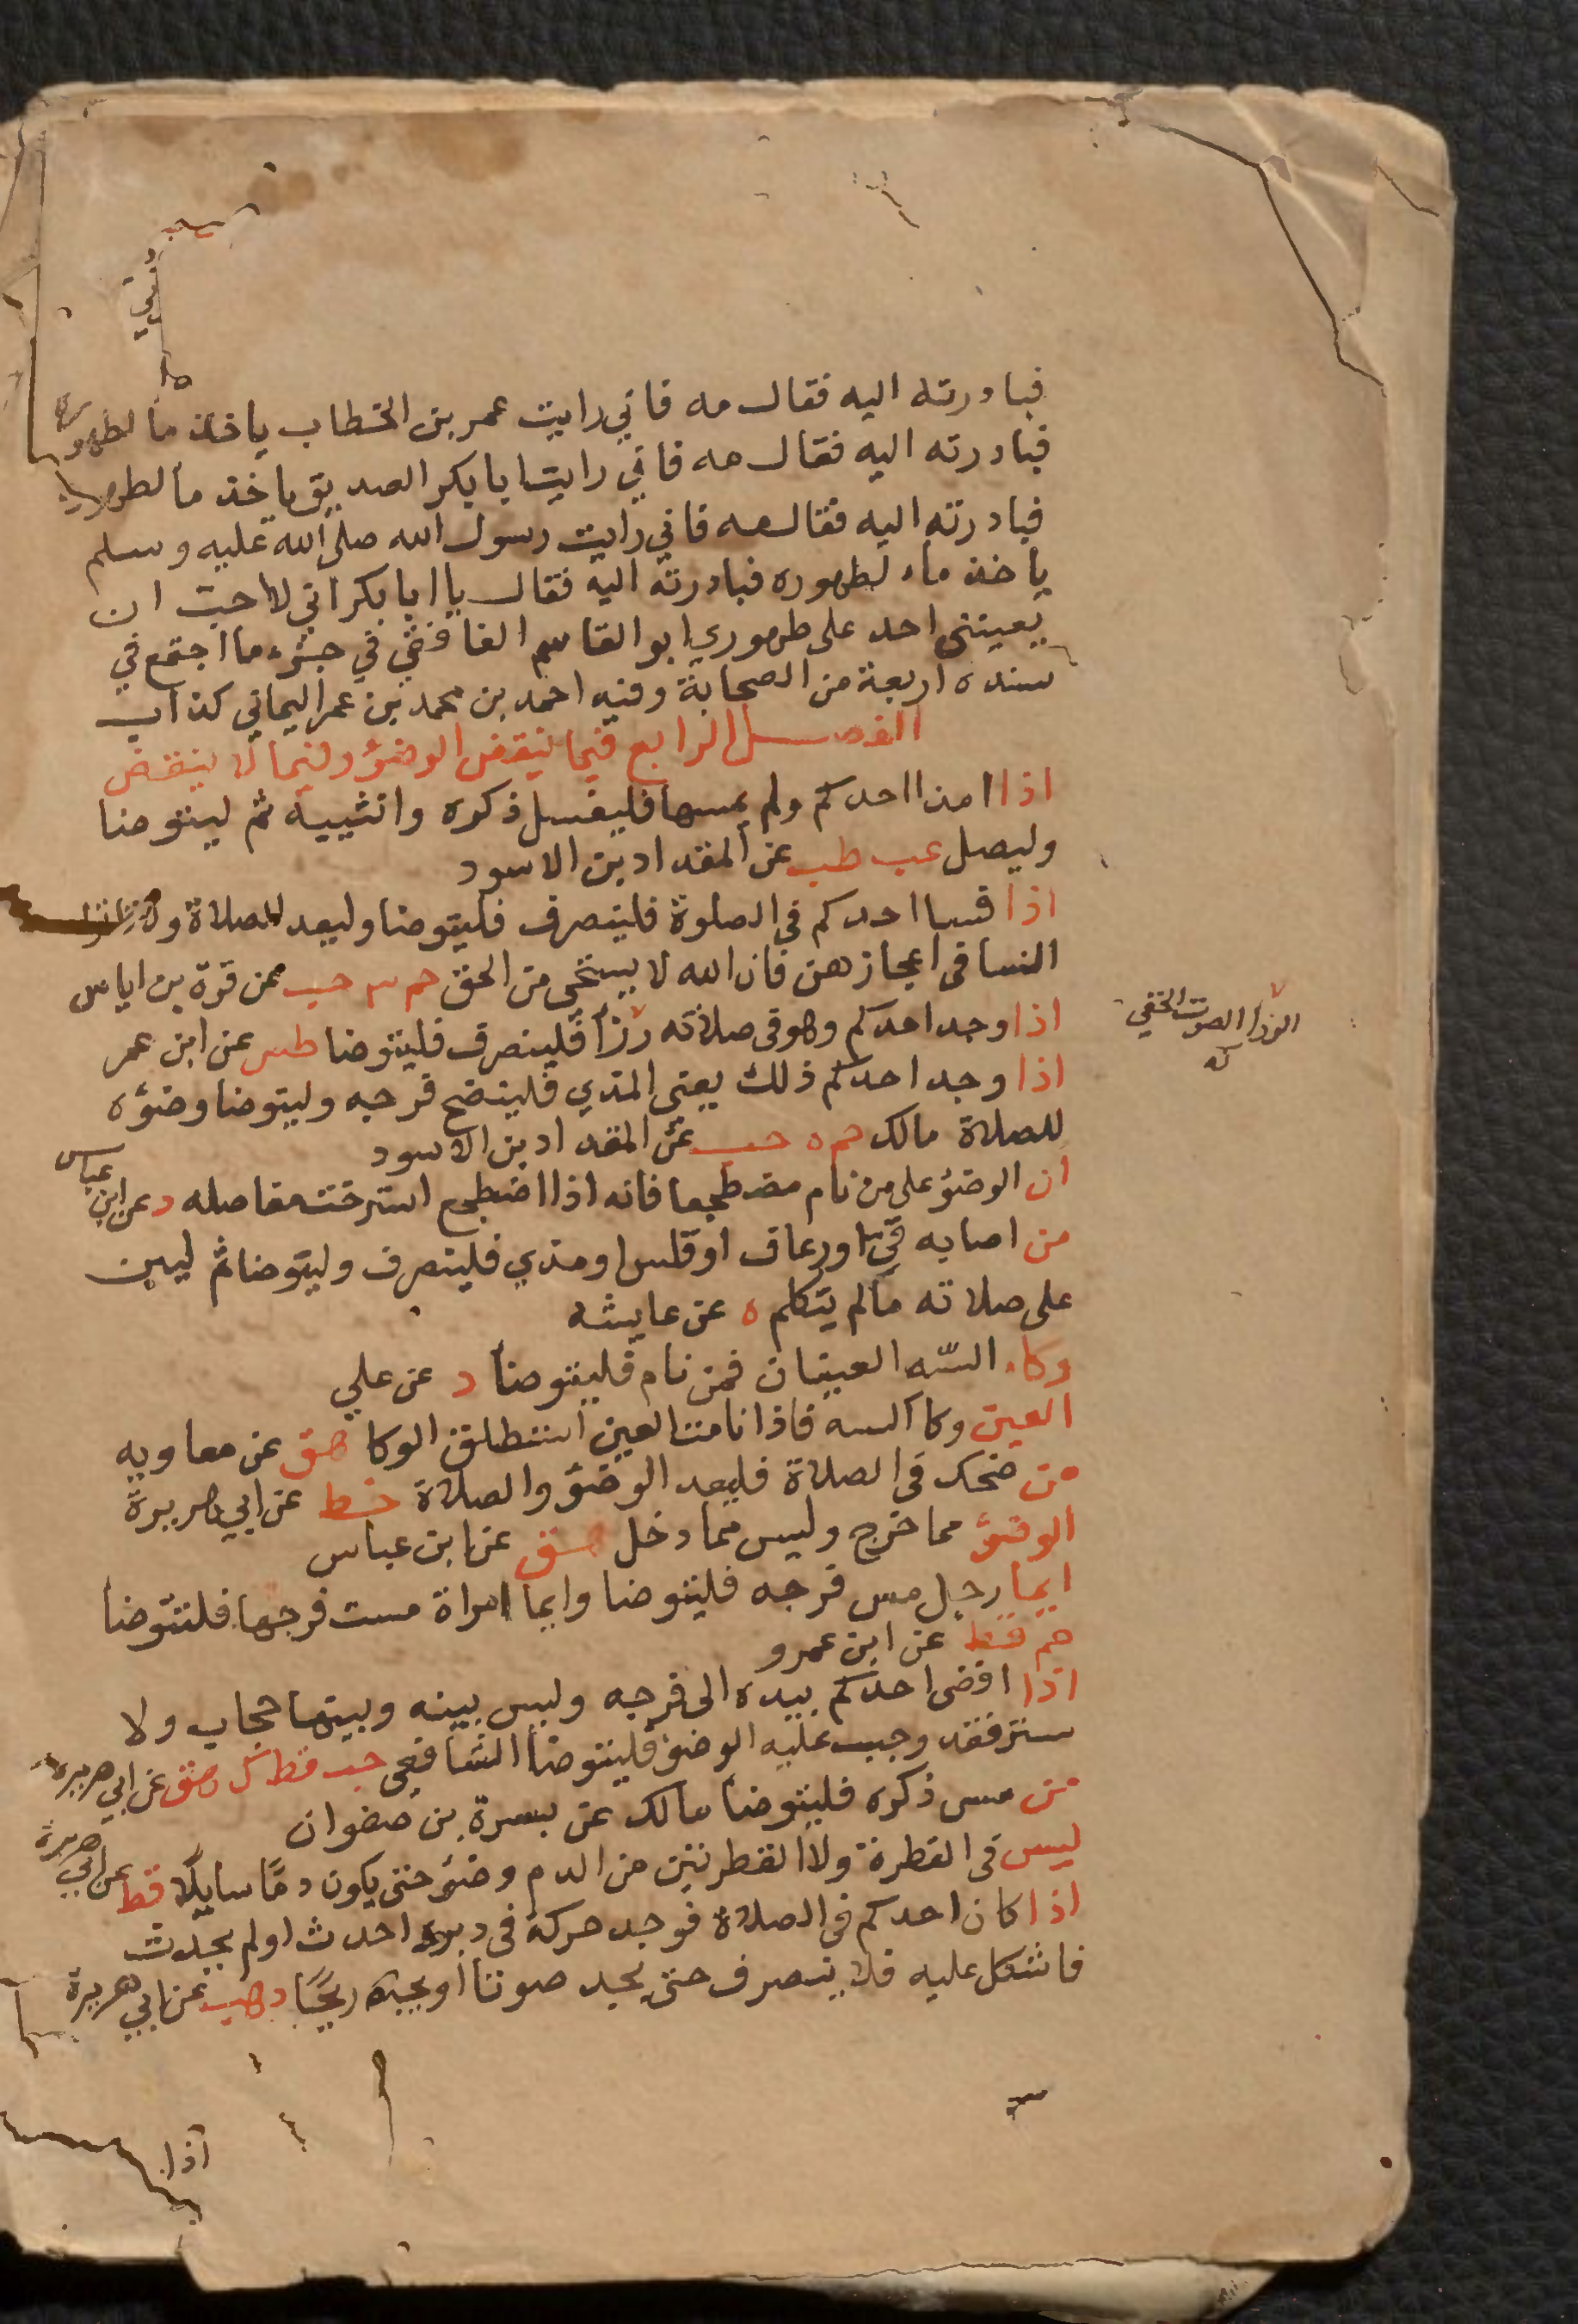 فبادرته اليه فقال مه فاني رايت عمر بن الخطاب ياخذ ما لطهوره
فبادرته اليه فقال مه فاني رايت ابا بكر الصديق ياخذ ما لطهوره
فبادرته اليه فقال مه فاني رايت رسول الله صلى الله عليه وسلم
ياخذ ماء لطهوره فبادرته اليه فقال يا ابا بكر اني لا احب ان
يعينني احد على طهوري ابو القاسم الغافقي في جزء ما اجتمع في
سنده اربعة من الصحابة وفيه احمد بن محمد بن عمر اليماني كذاب
الفصل الرابع فيما ينقض الوضوء وفيما لا ينقض
اذا امذا احدكم ولم يمسها فليغسل ذكره وانثييه ثم ليتوضا
وليصل عب طب عن المقداد بن الاسود
اذا فسا احدكم في الصلوة فلينصرف فليتوضا وليعد الصلاة ولا تاتوا
النسا في اعجازهن فان الله لا يستحي من الحق حم حب عن قرة بن اياس
اذا وجد احدكم وهو في صلاته رزا فلينصرف فليتوضا طس عن ابن عمر
الرز الصوت الخفي
اذا وجد احدكم ذلك يعني المذي فلينضح فرجه وليتوضا وضوءه
للصلاة مالك حم ه حب عن المقداد بن الاسود
ان الوضوء على من نام مضطجعا فانه اذا اضطجع استرخت مفاصله د عن ابن عباس
من اصابه قيء او رعاف او قلس او مذي فلينصرف وليتوضا ثم ليبن
على صلاته مالم يتكلم ه عن عايشه
وكاء السّه العينان فمن نام فليتوضا د عن علي
العين وكا السه فاذا نامت العين استطلق الوكا هق عن معاويه
من ضحك في الصلاة فليعد الوضوء والصلاة خط عن ابي هريرة
الوضوء مما خرج وليس مما دخل هق عن ابن عباس
ايما رجل مس فرجه فليتوضا وايما امراة مست فرجها فلتتوضا
حم قط عن ابن عمرو
اذا افضى احدكم بيده الى فرجه وليس بينه وبينها حجاب ولا
ستر فقد وجب عليه الوضوء فليتوضا الشافعي حب قط ك هق عن ابي هريرة
من مس ذكره فليتوضا مالك عن بسرة بن صفوان
ليس في القطرة ولا القطرتين من الدم وضوء حتى يكون دمًا سايلًا قط عن ابي هريرة
اذا كان احدكم في الصلاة فوجد حركة في دبره احدث او لم يحدث
فاشكل عليه فلا ينصرف حتى يجد صوتا او يجد ريحًا د هب عن ابي هريرة
اذا